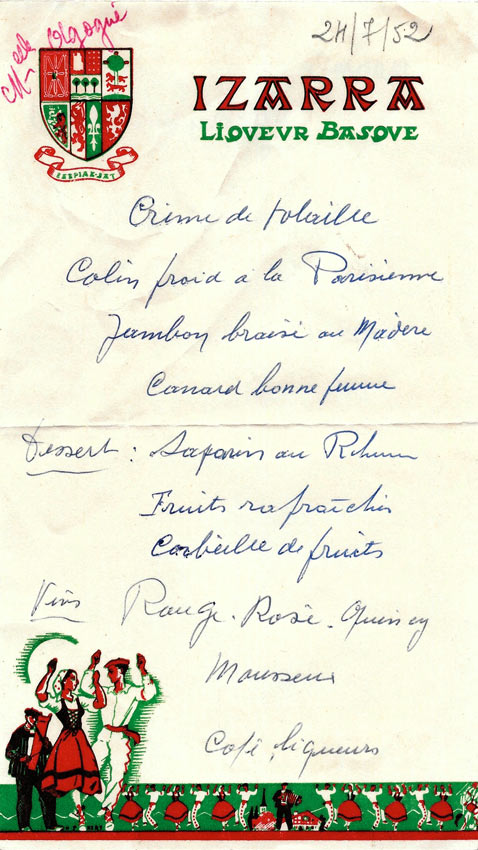 24/7/52
Melle
IZARRA
LIQVEVR BASQVE
ZAZPIAK-BAT
Crème de volaille
Colin froid à la Parisienne
Jambon braisé au Madère
Canard bonne femme
Dessert : Savarin au Rhum
Fruits rafraîchis
Corbeille de fruits
Vins Rouge - Rosé - Quincy
Mousseux
Café, liqueurs